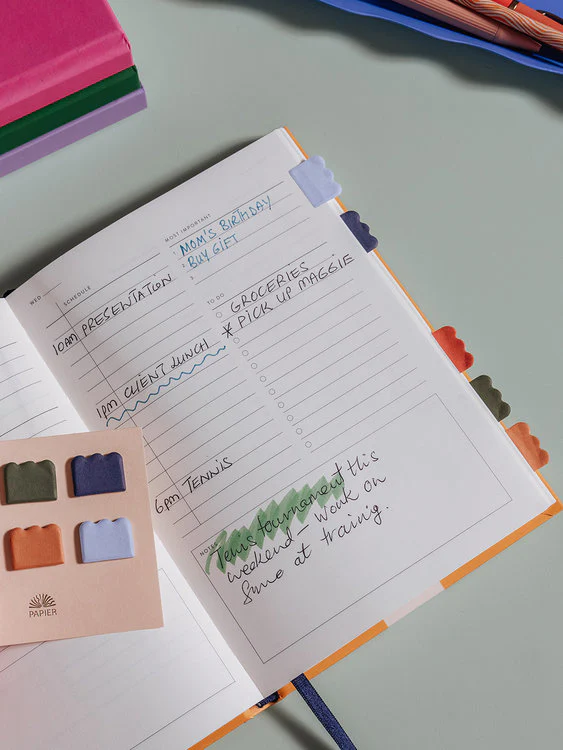 WED
SCHEDULE
10am PRESENTATION
1pm CLIENT LUNCH
6pm TENNIS
MOST IMPORTANT
1 MOM'S BIRTHDAY
2 BUY GIFT
3
TO DO
GROCERIES
PICK UP MAGGIE
NOTES
Tennis tournament this
weekend – work on
at training.
PAPIER